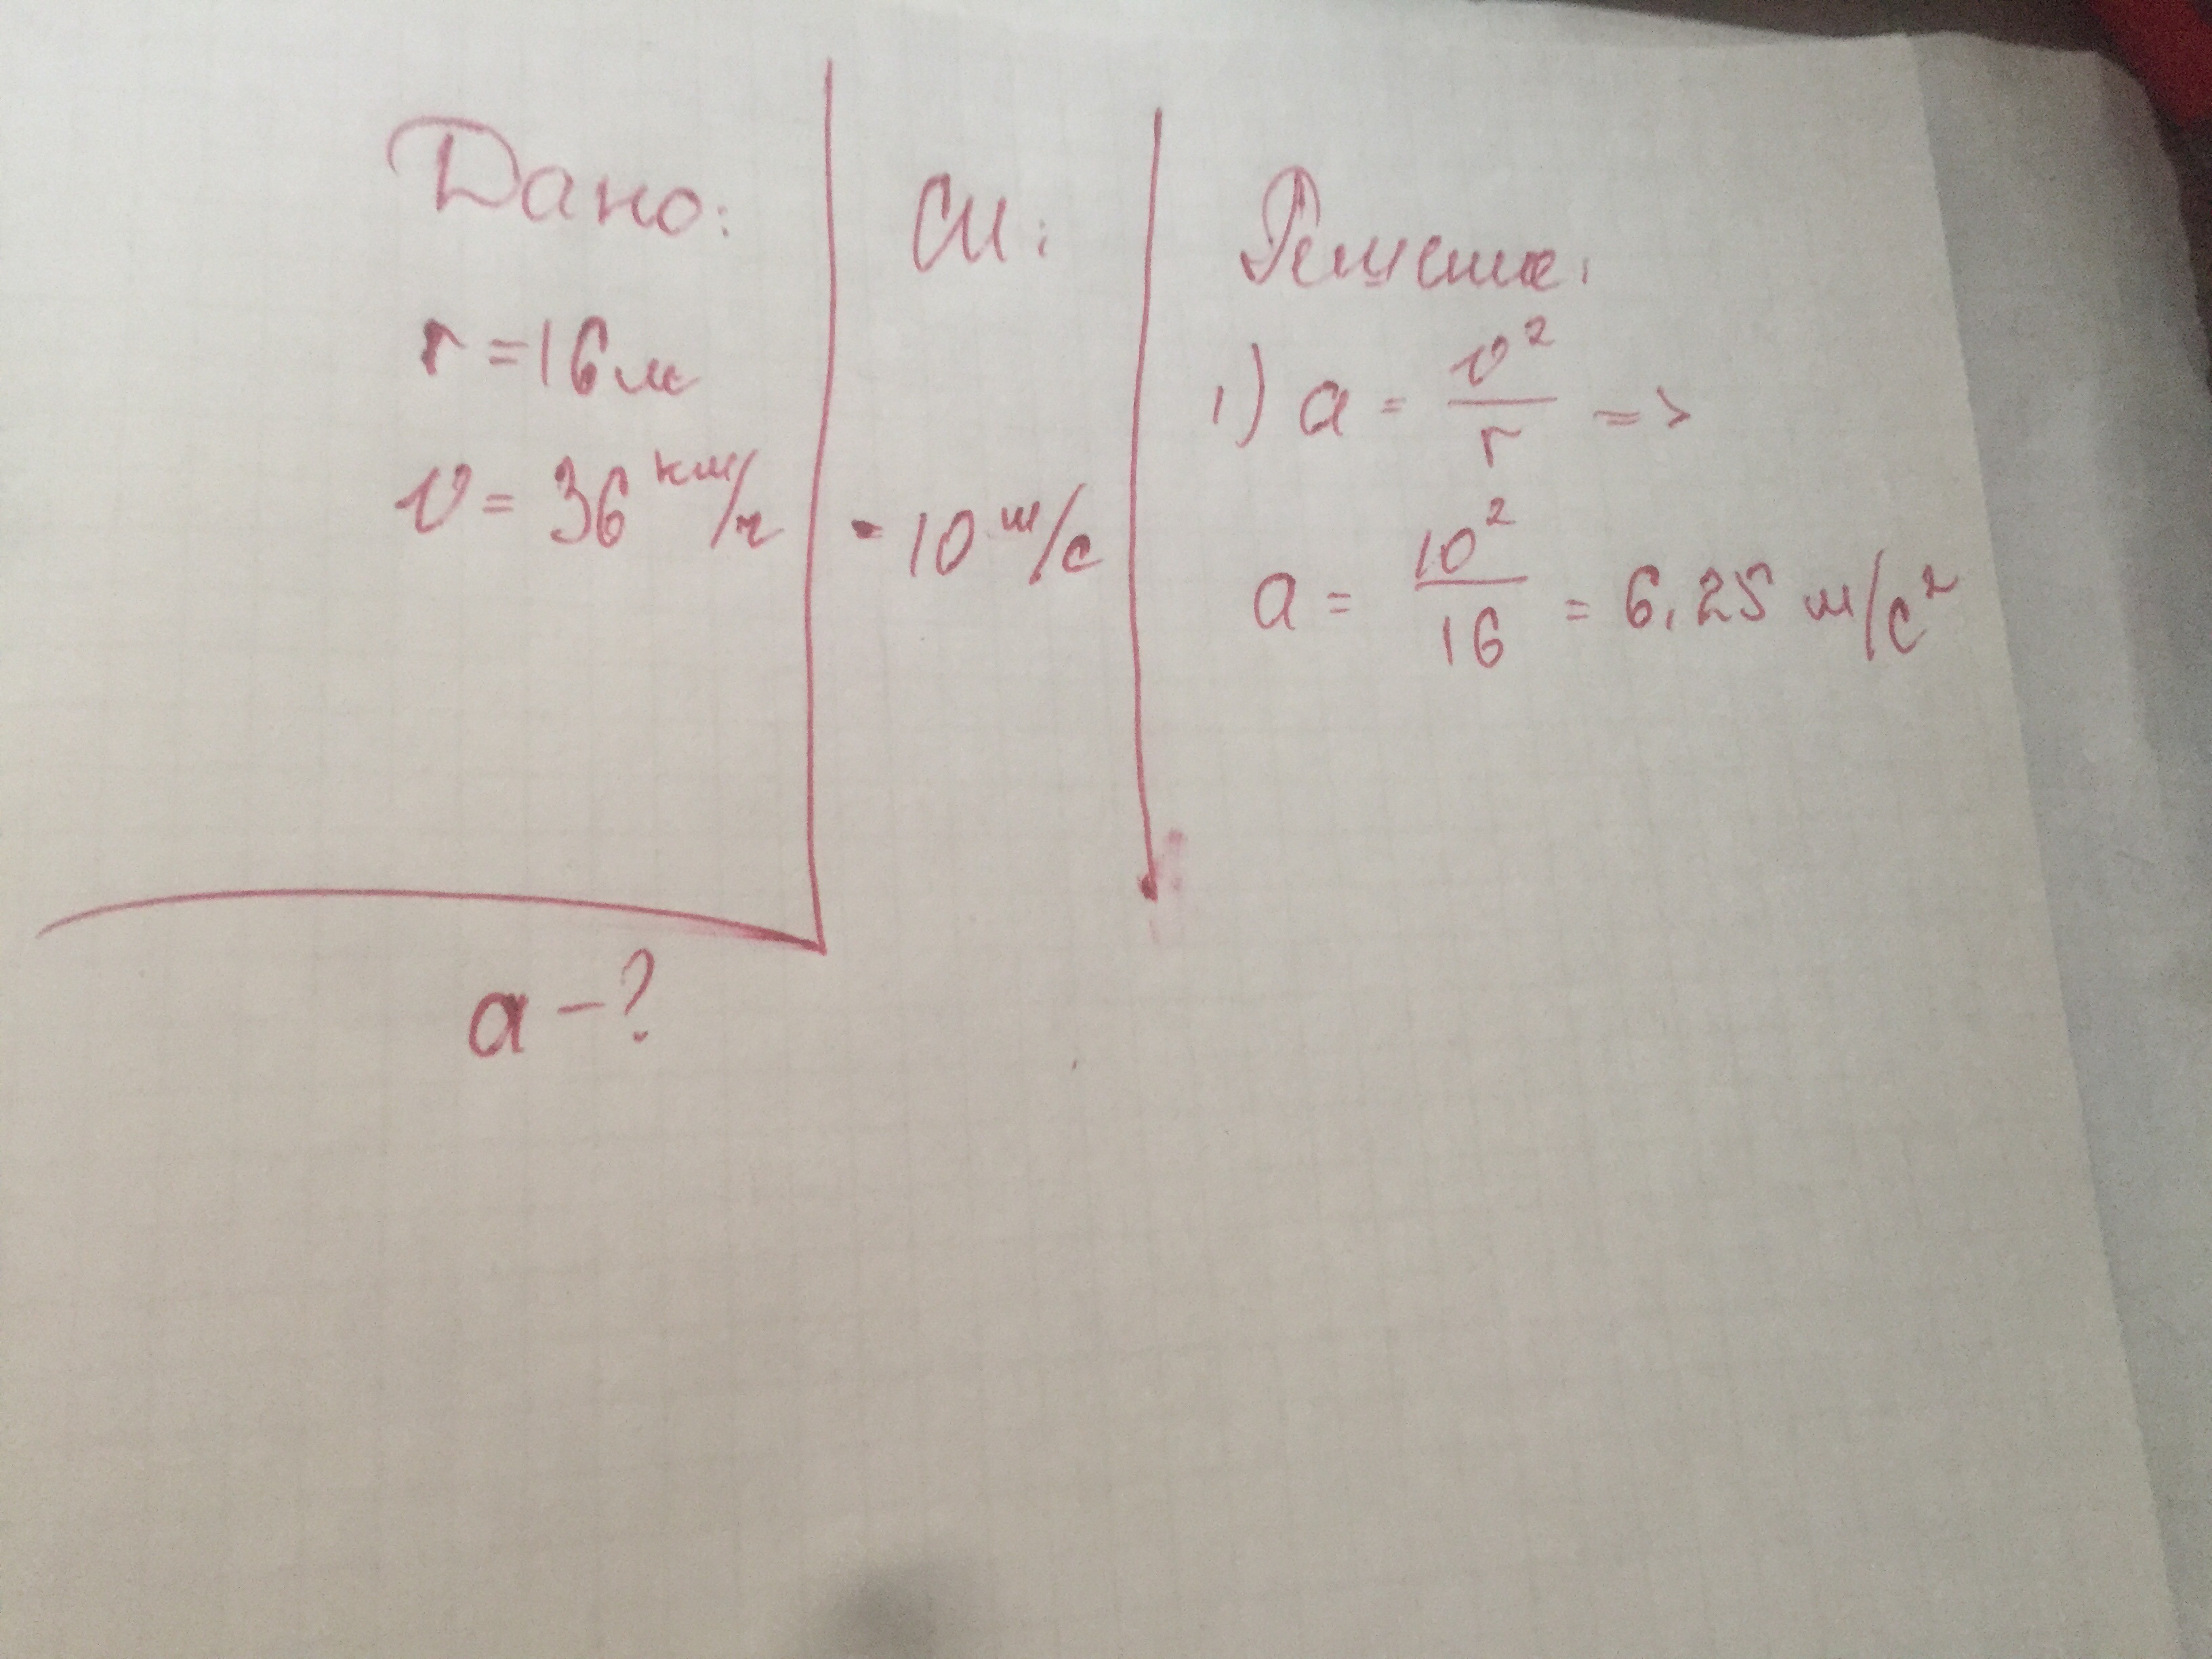 Дано:
r = 16 м
υ = 36 км/ч
a - ?
СИ:
= 10 м/с
Решение:
1) a = υ²/r =>
a = 10²/16 = 6,25 м/с²